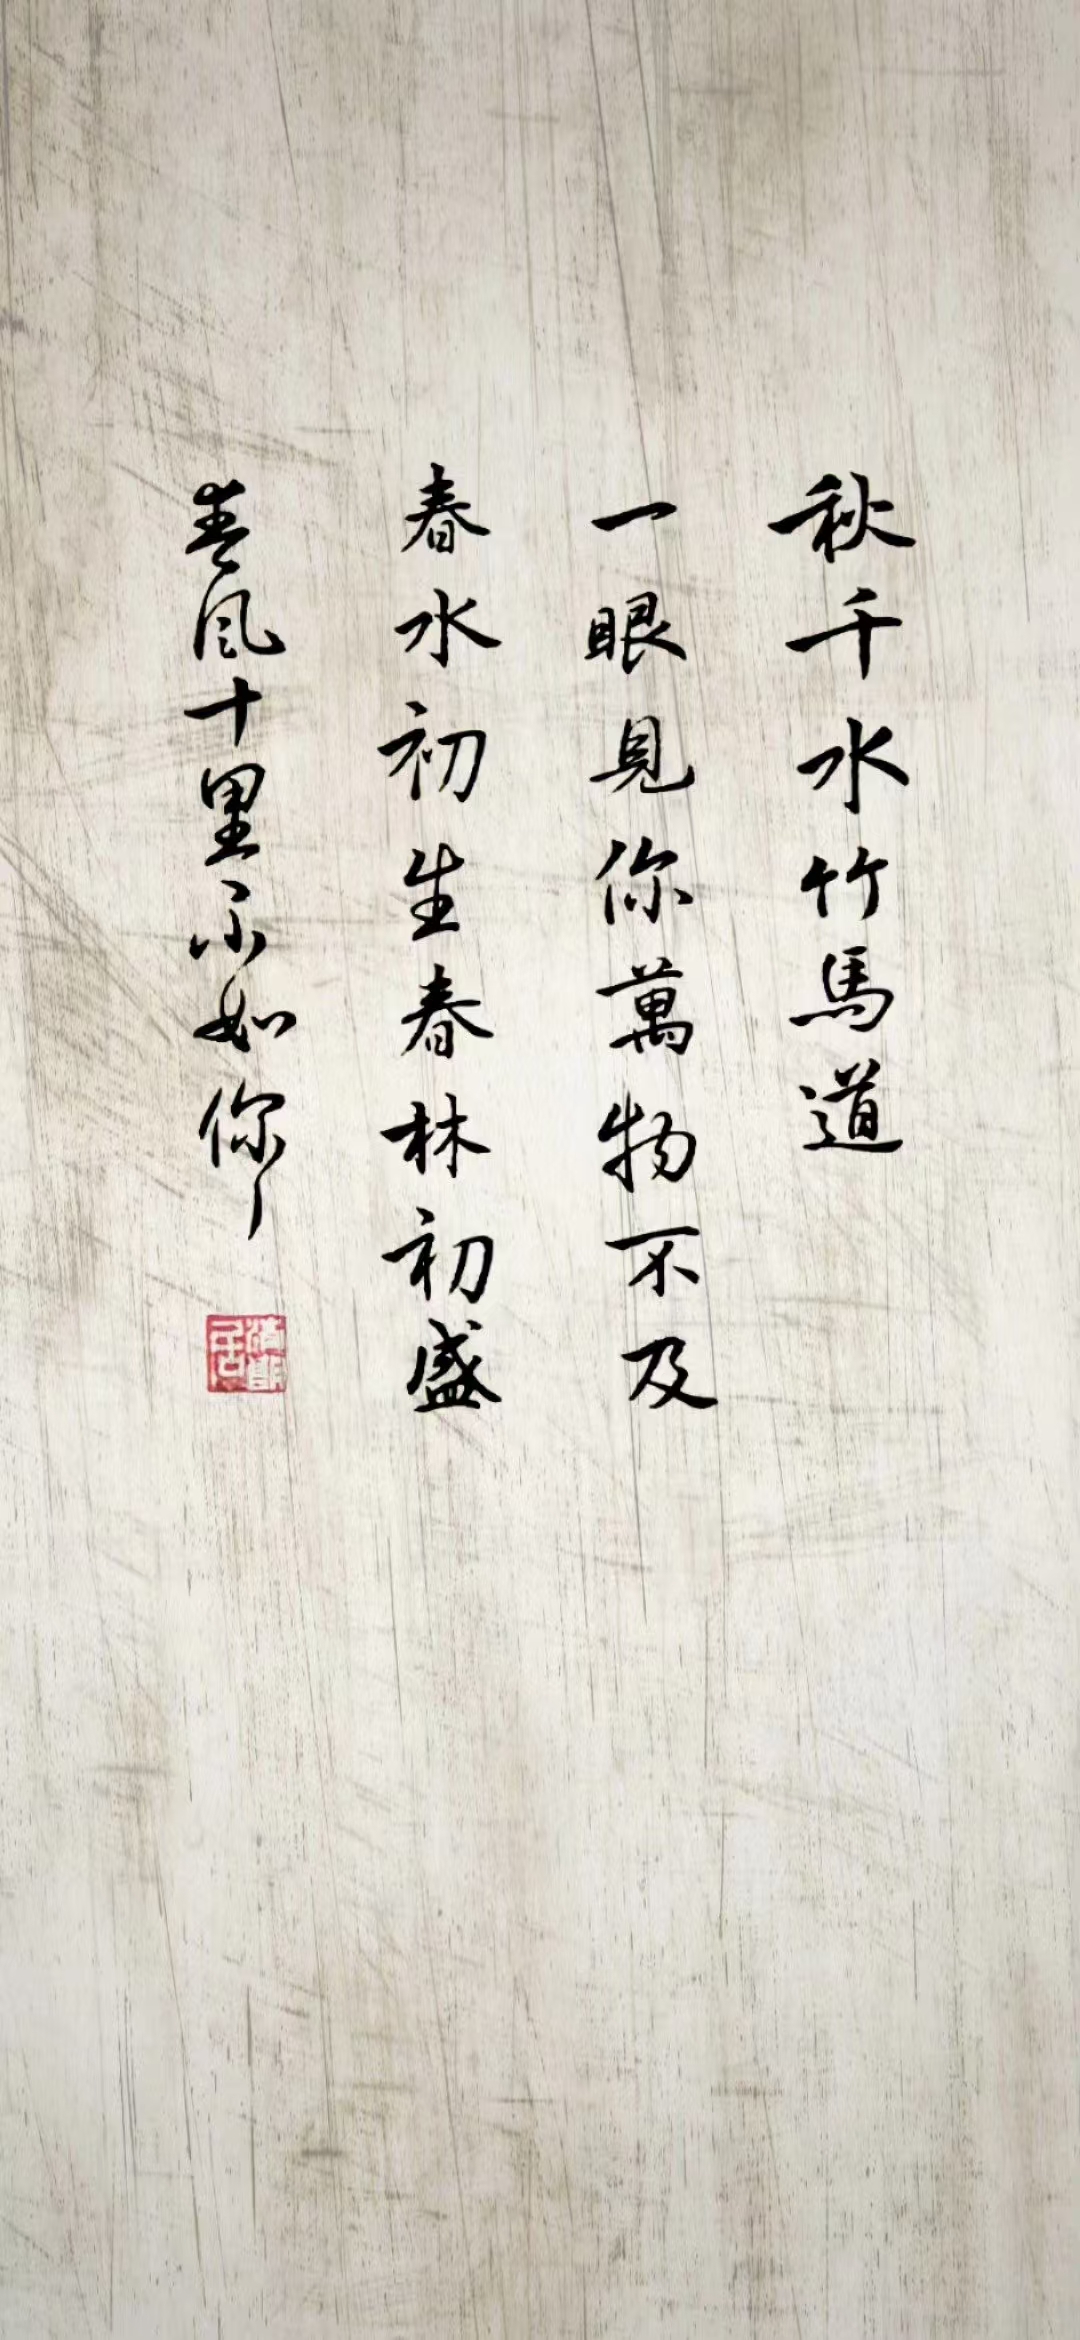 秋千水竹馬道
一眼見你萬物不及
春水初生春林初盛
春风十里不如你